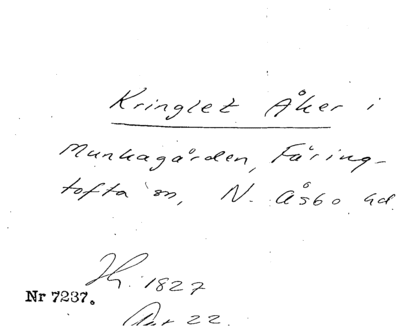 Kringlet Åker i
Munkagården, Färing-
tofta sn, N. Åsbo hd
1827
Nr 7237.
22